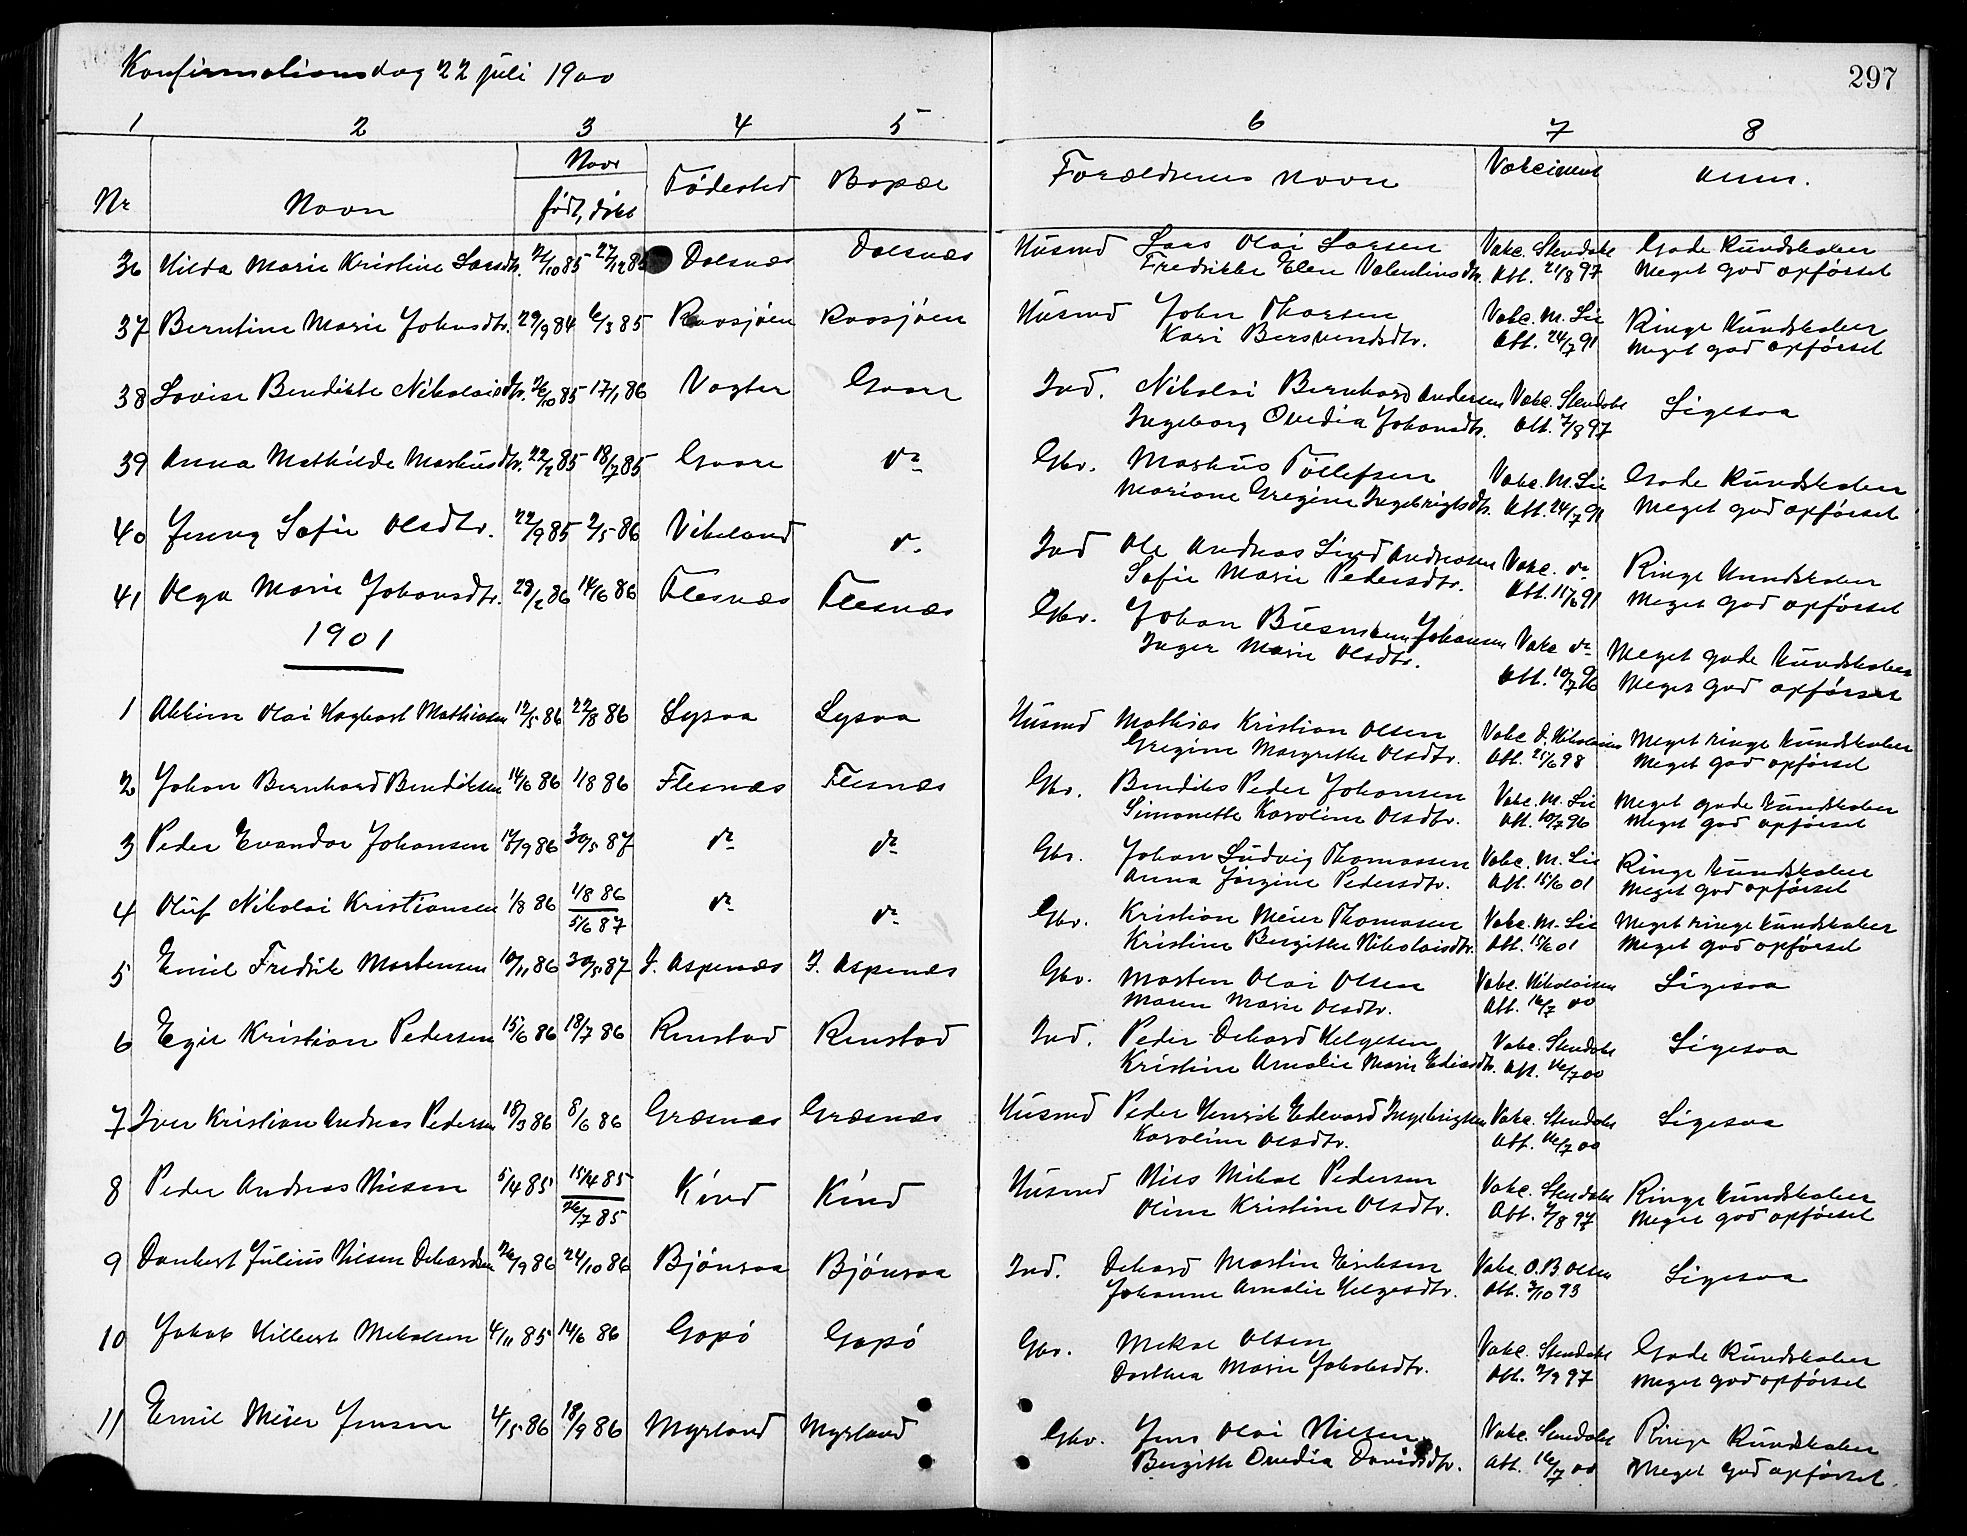 Konfirmationsdag 22 juli 1900
297
1 2 3 4 5 6 7 8
Nr Navn Naar født, døbt Fødested Bopæl Forældrenes navn Vakcinert Anm.
36 Hilda Marie Kristine Larsdtr. 12/10 85 27/12 85 Dalsnæs Dalsnæs Husmd Lars Olai Larsen Vakc. Stendahl Gode Kundskaber
Fredrikke Elen Valentinsdtr. Att. 21/8 97 Meget god opførsel
37 Berntine Marie Johnsdtr. 29/9 84 6/3 85 Raasjøen Raasjøen Husmd John Thorsen Vakc. M. Lie Ringe Kundskaber
Kari Bersvendsdtr. Att. 24/7 91 Meget god opførsel
38 Lovise Bendikte Nikolaisdtr. 26/10 85 17/1 86 Vagter Gaare Ind. Nikolai Bernhard Andersen Vakc. Stendahl Ligesaa
Ingeborg Ovedia Johansdtr. Att. 7/8 97
39 Anna Mathilde Markusdtr. 22/2 85 18/7 85 Gaare do Gbr. Markus Tollefsen Vakc. M. Lie Gode Kundskaber
Mariane Gregine Ingebrigtsdtr. Att. 24/7 91 Meget god opførsel
40 Jenny Sofie Olsdtr. 22/9 85 2/5 86 Vikeland do Ind Ole Andreas Lind Andreasen Vakc. do Ringe Kundskaber
Sofie Marie Pedersdtr. Att. 11/6 91 Meget god opførsel
41 Olga Marie Johansdtr. 28/2 86 14/6 86 Flesnæs Flesnæs Gbr. Johan Johansen Vakc do Meget gode Kundskaber
Inger Marie Olsdtr. Att. 10/7 96 Meget god opførsel
1901
1 Akkim Olai Hagbart Mathiasen 12/5 86 22/8 86 Lysaa Lysaa Husmd Mathias Kristian Olsen Vakc D. Nikolaisen Meget ringe Kundskaber
Gregine Margrethe Olsdtr. Att. 21/6 98 Meget god opførsel
2 Johan Bernhard Bendiksen 14/6 86 1/8 86 Flesnæs Flesnæs Gbr. Bendiks Peder Johansen Vakc. M. Lie Meget gode Kundskaber
Simonette Karoline Olsdtr. Att. 10/7 96 Meget god opførsel
3 Peder Evandar Johansen 14/9 86 30/5 87 do do Gbr. Johan Ludvig Thomassen Vakc. M. Lie Ringe Kundskaber
Anna Jørgine Pedersdtr. Att. 15/6 01 Meget god opførsel
4 Oluf Nikolai Kristiansen 1/8 86 1/8 86 do do Gbr. Kristian Meier Thomasen Vakc. M. Lie Meget ringe Kundskaber
5/6 87 Kristine Bergitte Nikolaisdtr. Att. 15/6 01 Meget god opførsel
5 Emil Fredrik Martensen 10/11 86 30/5 87 I. Aspenæs I. Aspenæs Gbr. Marten Olai Olsen Vakc. Nikolaisen Ligesaa
Maren Marie Olsdtr. Att. 16/7 00
6 Egil Kristian Pedersen 15/6 86 18/7 86 Renstad Renstad Ind. Peder Dehard Helgesen Vakc. Stendahl Ligesaa
Kristine Amalie Marie Ediasdtr. Att. 16/7 00
7 Iver Kristian Andreas Pedersen 18/3 86 8/6 86 Græsnæs Græsnæs Husmd Peder Henrik Edevard Ingebrigtsen Vakc. Stendahl Ligesaa
Karoline Olsdtr. Att. 16/7 00
8 Peder Andreas Nilsen 5/4 85 15/4 85 Kind Kind Husmd Nils Mikal Pedersen Vakc. Stendahl Ringe Kundskaber
26/7 85 Oline Kristine Olsdtr. Att. 7/8 97 Meget god opførsel
9 Dankert Julius Nilsen Dehardsen 26/9 86 24/10 86 Bjønraa Bjønraa Ind. Dehard Martin Eriksen Vakc. O. B Olsen Ligesaa
Johanne Amalie Helgesdtr. Att. 2/10 93
10 Jakob Hilbert Mekalsen 4/11 85 14/6 86 Gapø Gapø Gbr. Mekal Olsen Vakc. Stendahl Gode Kundskaber
Dorthea Marie Jakobsdtr. Att. 2/9 97 Meget god opførsel
11 Emil Meier Jensen 4/5 86 18/9 86 Myrland Myrland Gbr. Jens Olai Nilsen Vakc. Stendahl Ringe Kundskaber
Bergitte Ovedia Davidsdtr. Att. 16/7 00 Meget god opførsel.